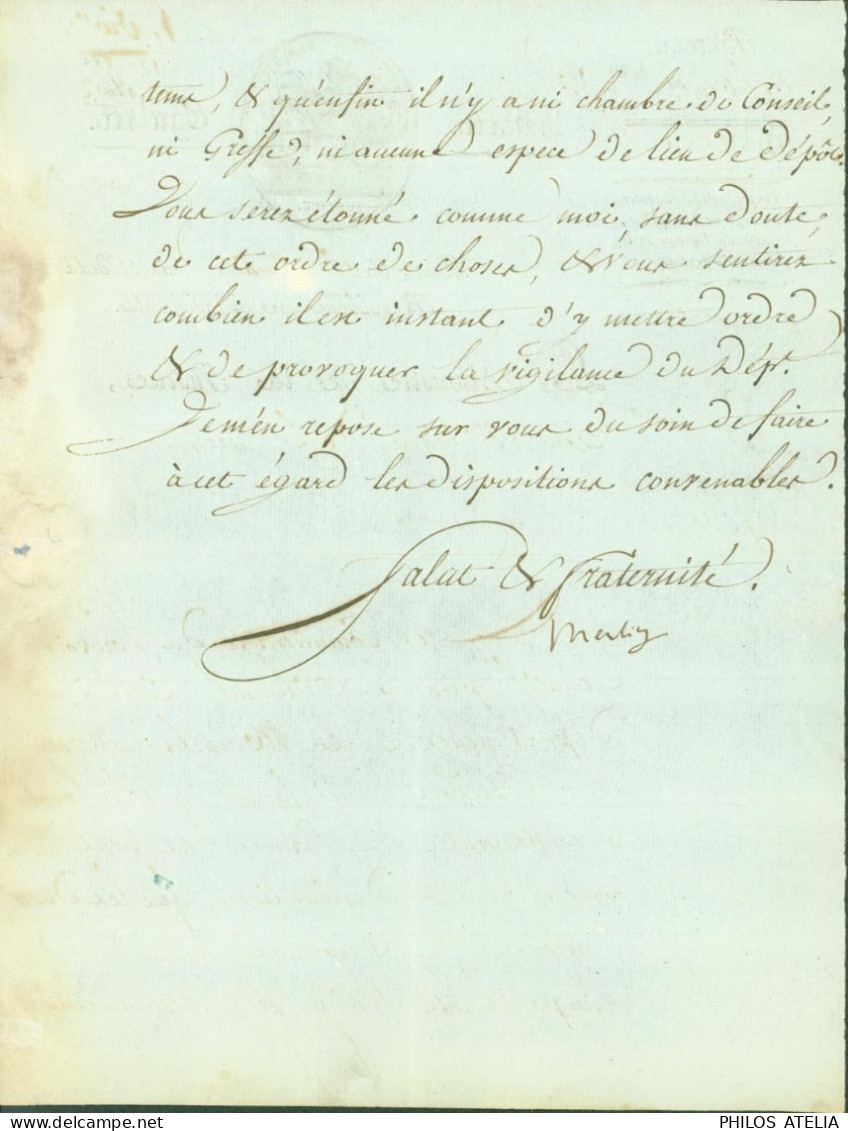 tems, & qu'enfin il n'y a ni chambre de Conseil,
ni Greffe, ni aucune espece de lieu de dépôt.
Vous serez étonné comme moi, sans doute,
de cet ordre de choses, & vous sentirez
combien il est instant d'y mettre ordre
& de provoquer la vigilance du Dépt.
Je m'en repose sur vous du soin de faire
à cet égard les dispositions convenables.
Salut & fraternité.
Merlin
PHILOS ATELIA